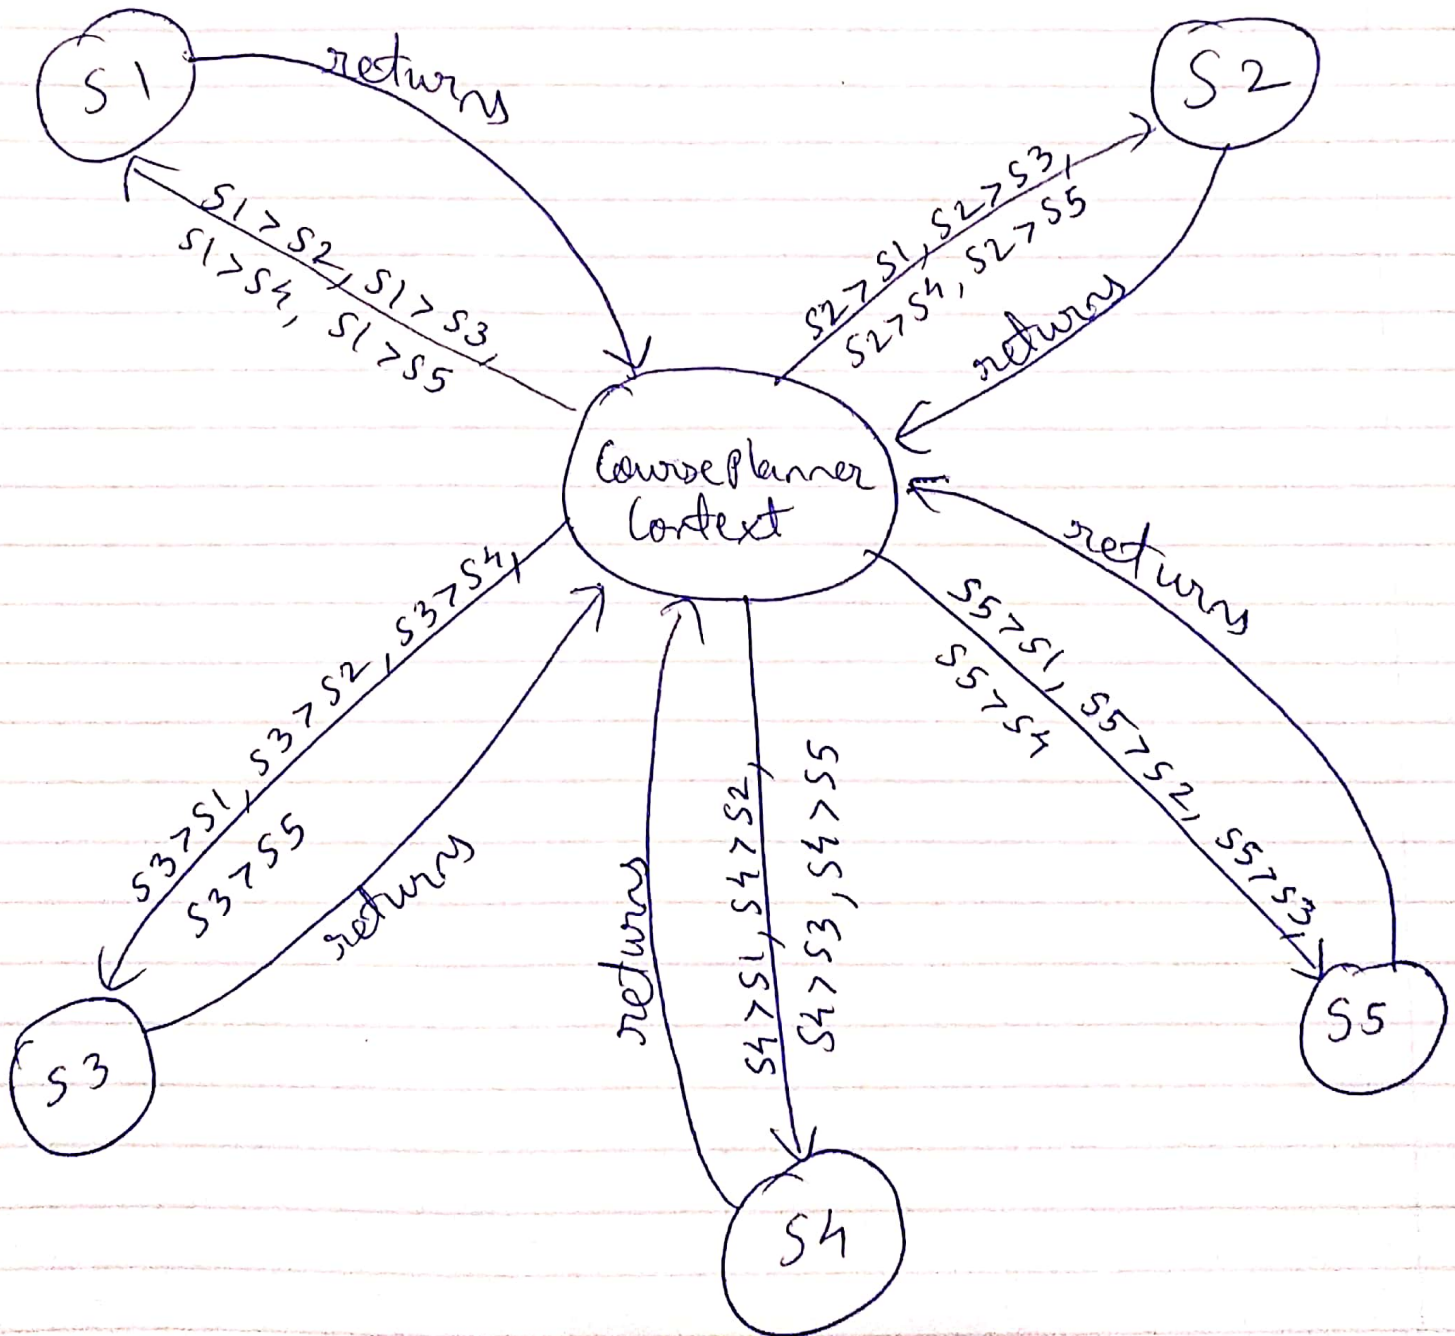 S1
returns
S2
S1>S2, S1>S3,
S1>S4, S1>S5
S2>S1, S2>S3,
S2>S4, S2>S5
returns
CoursePlanner
Context
returns
S3>S1, S3>S2, S3>S4,
S3>S5
returns
returns
S4>S1, S4>S2,
S4>S3, S4>S5
S5>S1, S5>S2, S5>S3,
S5>S4
S3
S4
S5